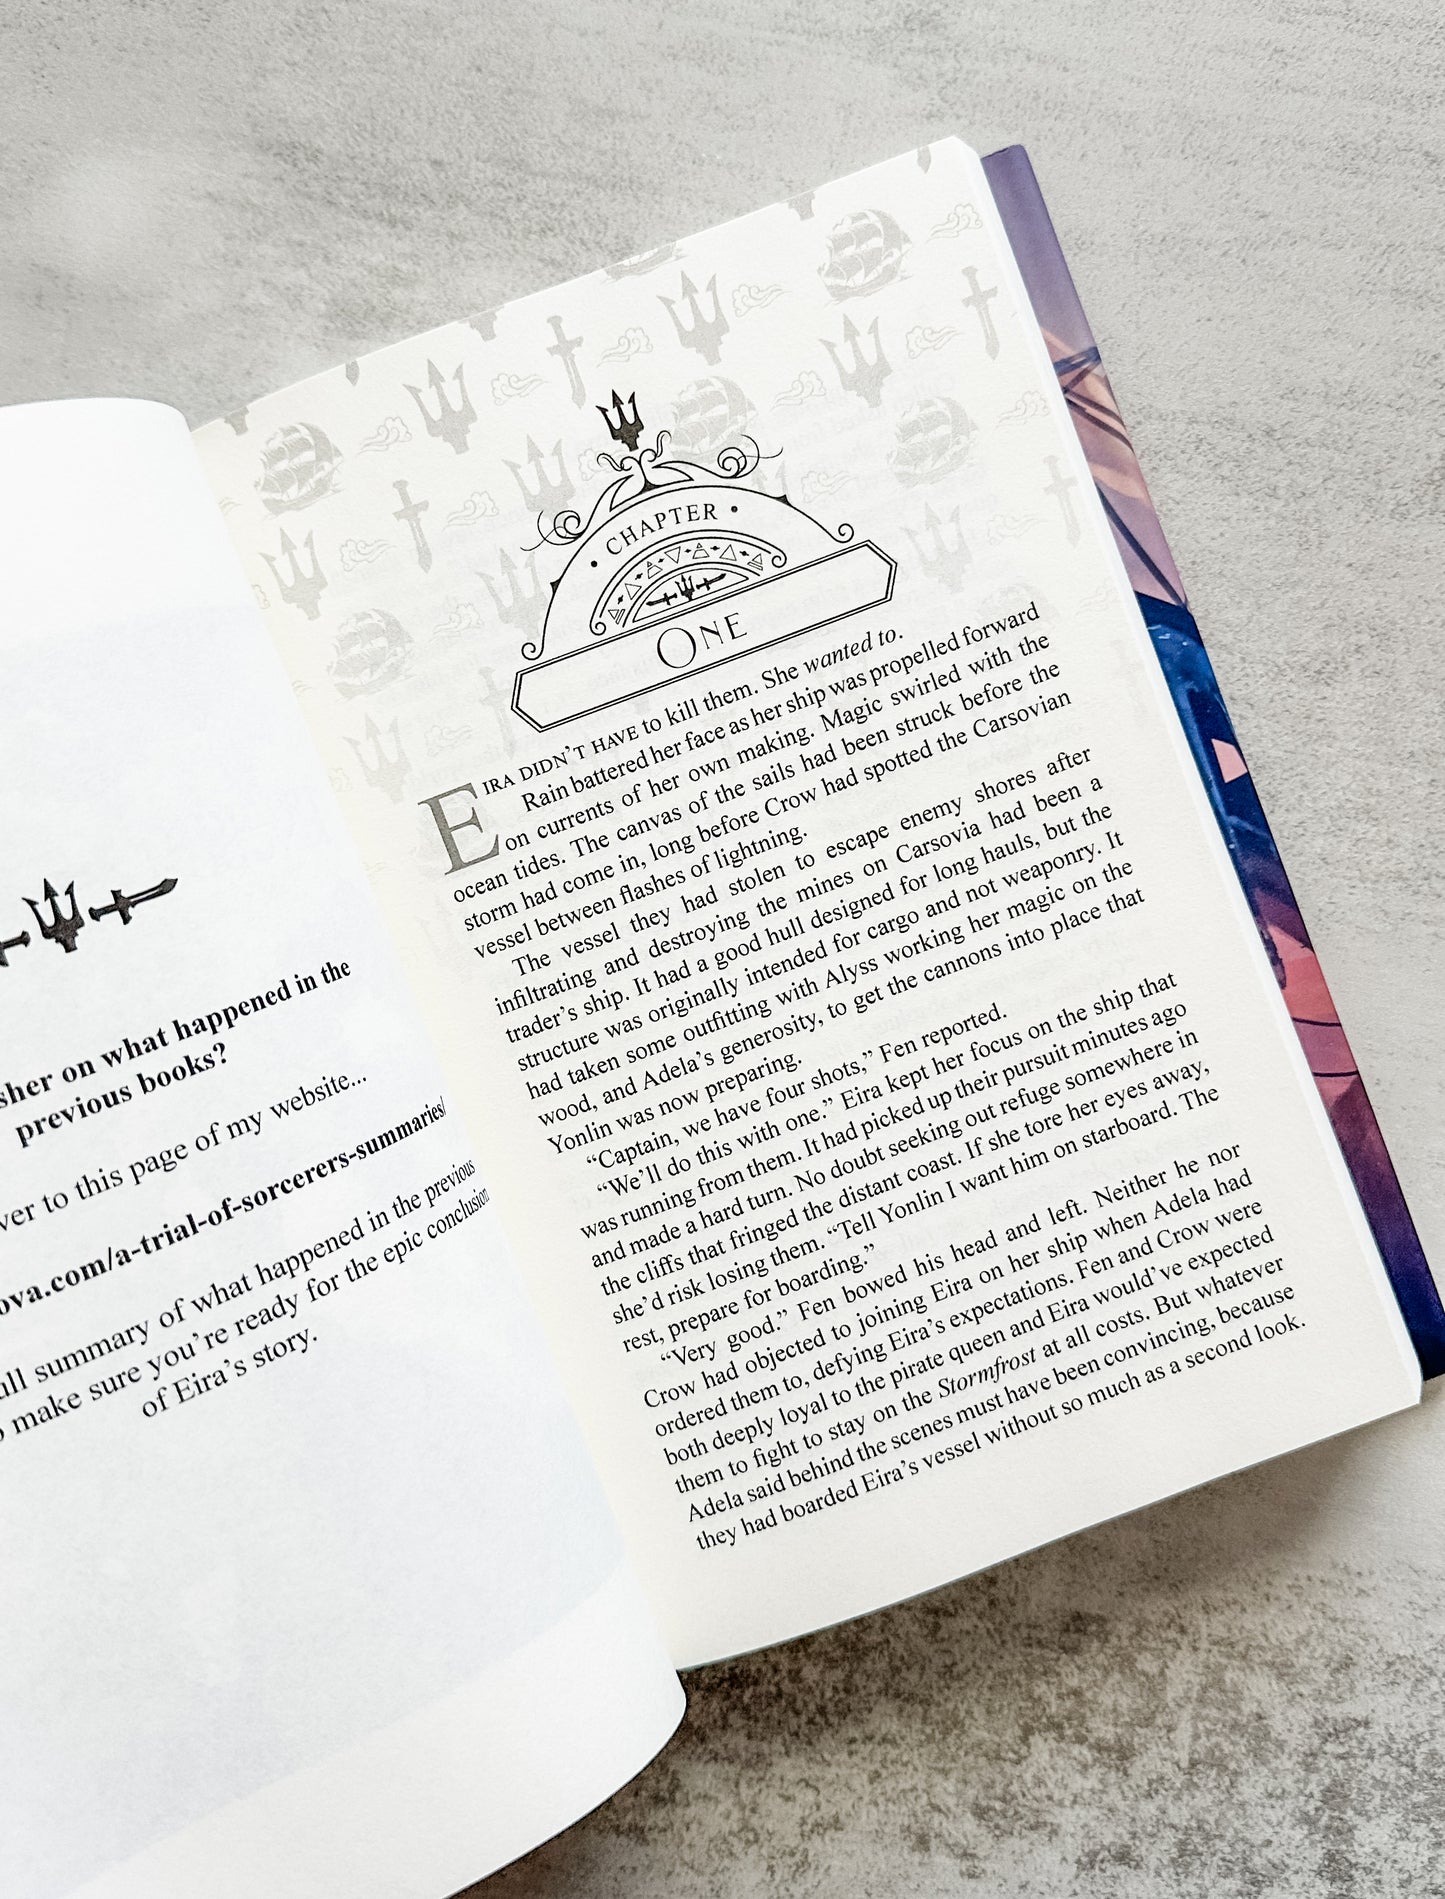 sher on what happened in the
previous books?
ver to this page of my website...
ova.com/a-trial-of-sorcerers-summaries/
ull summary of what happened in the previous
o make sure you’re ready for the epic conclusion
of Eira’s story.
• CHAPTER •
ONE
EIRA DIDN’T HAVE to kill them. She wanted to.
Rain battered her face as her ship was propelled forward
on currents of her own making. Magic swirled with the
ocean tides. The canvas of the sails had been struck before the
storm had come in, long before Crow had spotted the Carsovian
vessel between flashes of lightning.
The vessel they had stolen to escape enemy shores after
infiltrating and destroying the mines on Carsovia had been a
trader’s ship. It had a good hull designed for long hauls, but the
structure was originally intended for cargo and not weaponry. It
had taken some outfitting with Alyss working her magic on the
wood, and Adela’s generosity, to get the cannons into place that
Yonlin was now preparing.
“Captain, we have four shots,” Fen reported.
“We’ll do this with one.” Eira kept her focus on the ship that
was running from them. It had picked up their pursuit minutes ago
and made a hard turn. No doubt seeking out refuge somewhere in
the cliffs that fringed the distant coast. If she tore her eyes away,
she’d risk losing them. “Tell Yonlin I want him on starboard. The
rest, prepare for boarding.”
“Very good.” Fen bowed his head and left. Neither he nor
Crow had objected to joining Eira on her ship when Adela had
ordered them to, defying Eira’s expectations. Fen and Crow were
both deeply loyal to the pirate queen and Eira would’ve expected
them to fight to stay on the Stormfrost at all costs. But whatever
Adela said behind the scenes must have been convincing, because
they had boarded Eira’s vessel without so much as a second look.